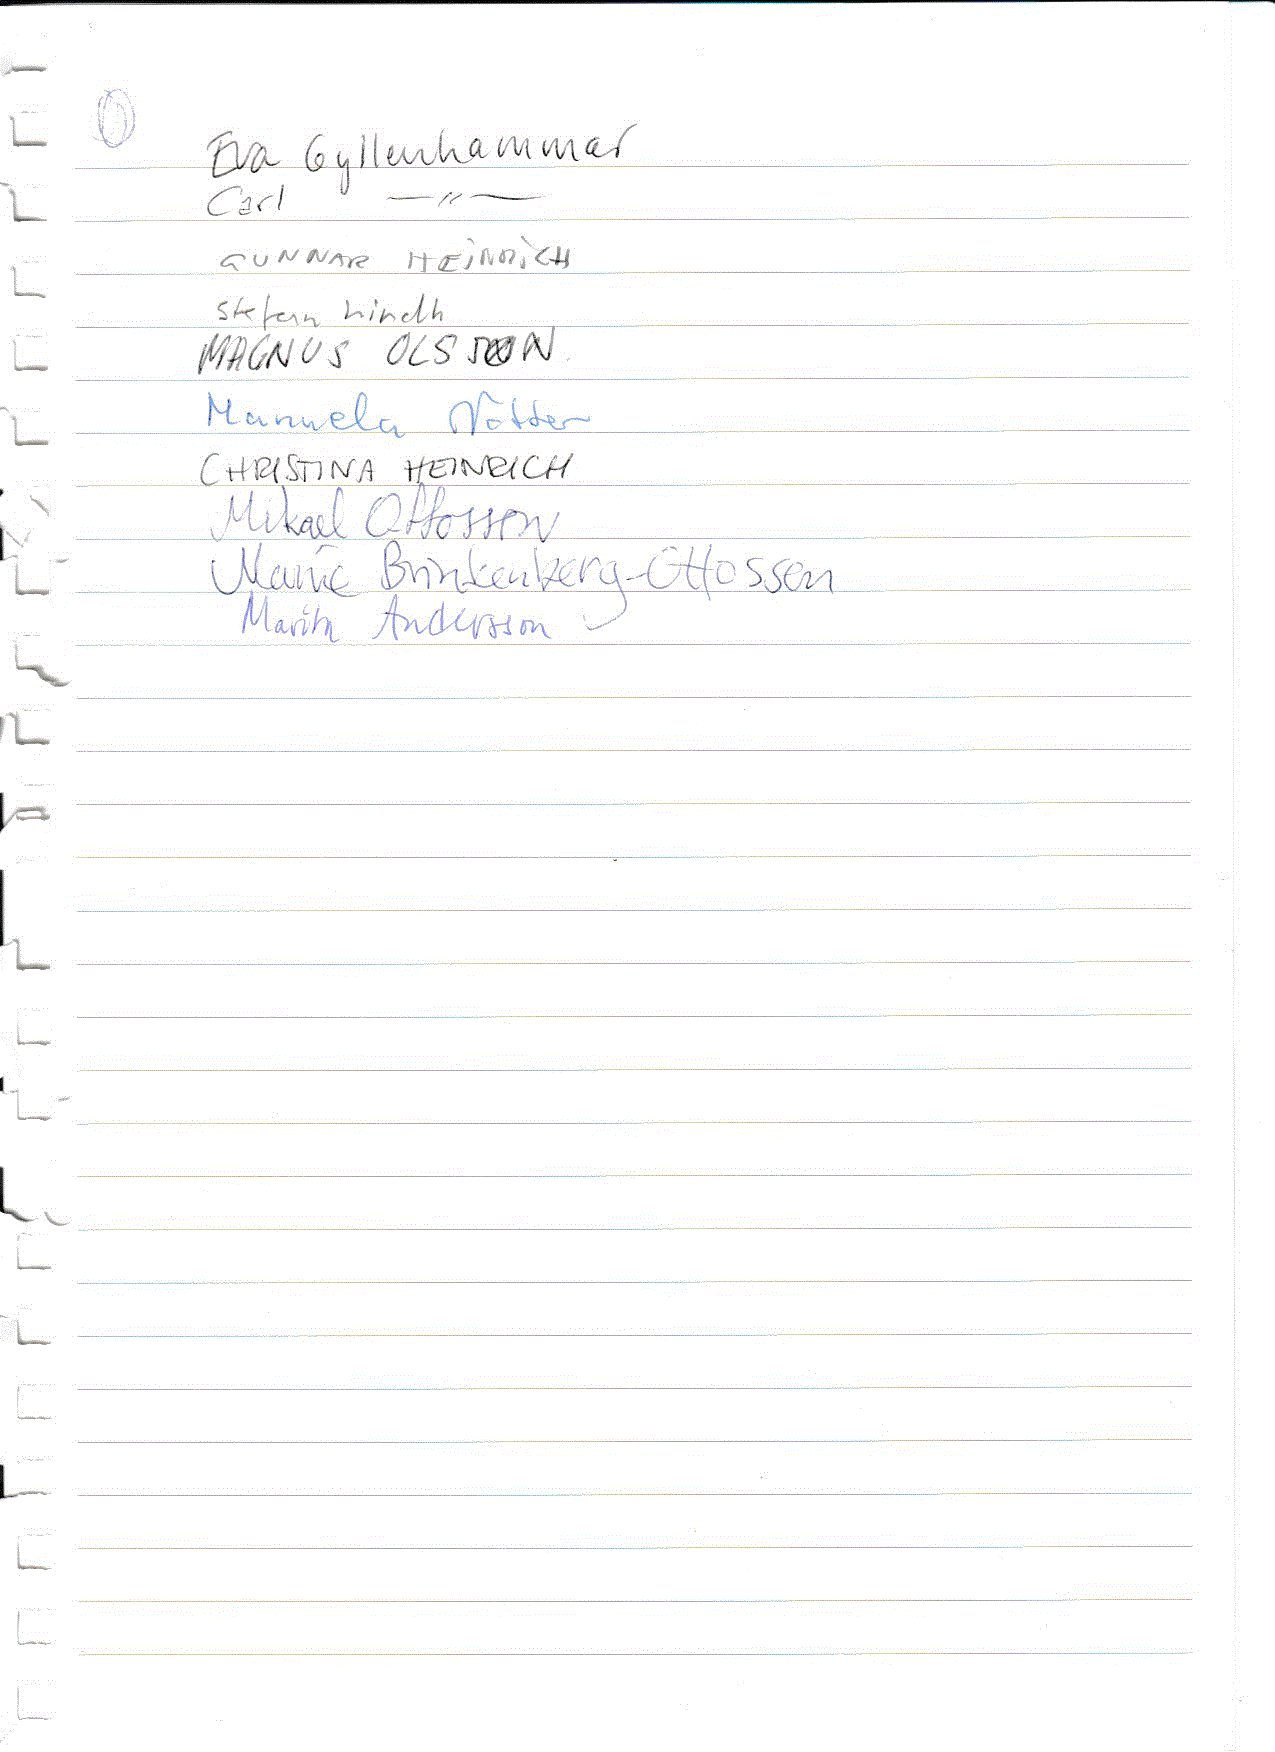 Eva Gyllenhammar
Carl —〃—
GUNNAR HEINRICH
Stefan Lindh
MAGNUS OLSSON
Manuela Nötter
CHRISTINA HEINRICH
Mikael Ottosson
Marie Brinkenberg-Ottosson
Marita Andersson